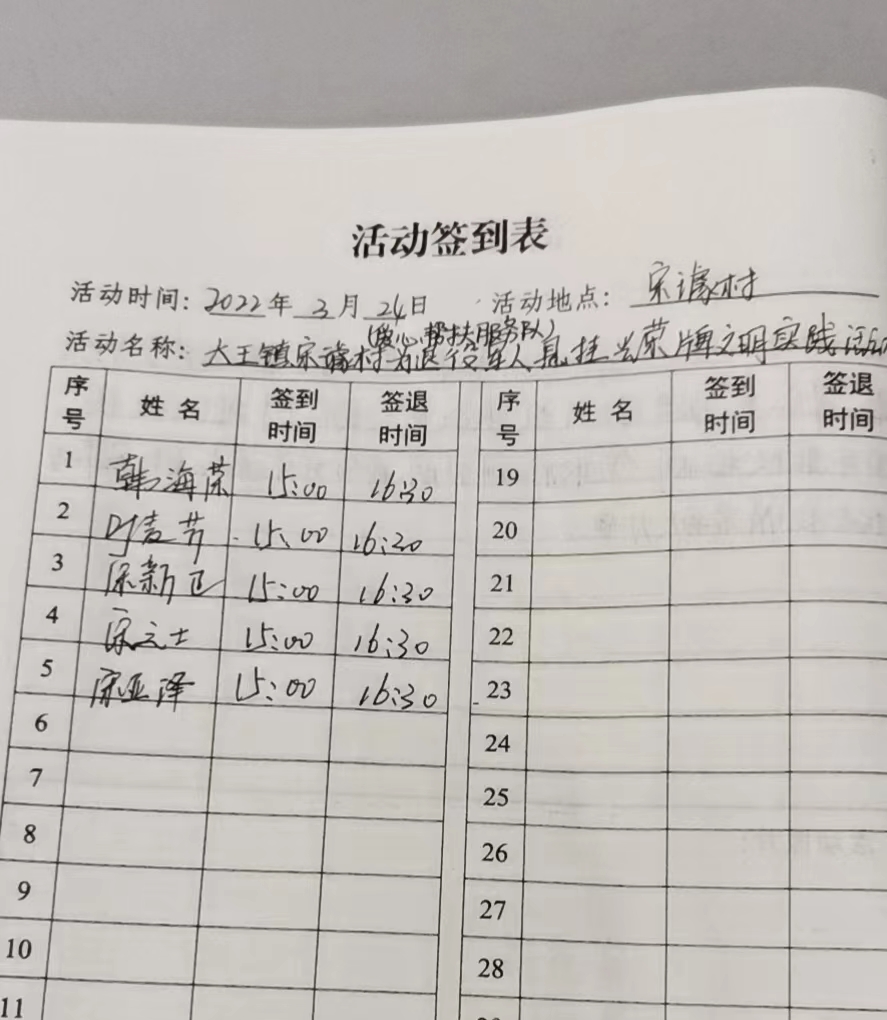 活动签到表
活动时间：2022年 3月 24日 活动地点：宋谯村
(爱心帮扶服务队)
活动名称：大王镇宋谯村为退役军人悬挂光荣牌文明实践活动
序号 姓名 签到时间 签退时间 序号 姓名 签到时间 签退时间
1 韩海荣 15:00 16:30 19
2 叶 芳 15:00 16:30 20
3 宋新卫 15:00 16:30 21
4 宋立士 15:00 16:30 22
5 宋亚泽 15:00 16:30 23
6 24
7 25
8 26
9 27
10 28
11